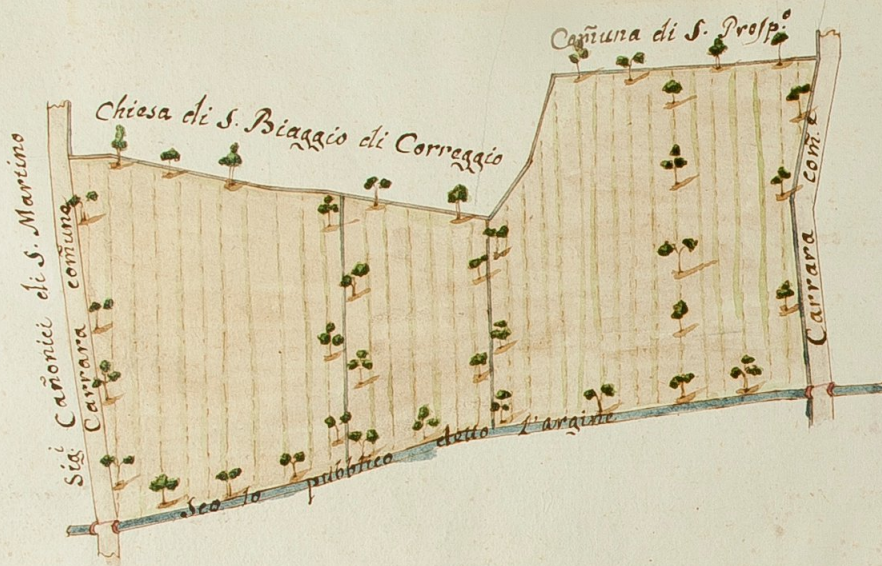 Comuna di S. Prosp.º
Chiesa di S. Biaggio di Correggio
Sigⁱ Cañonici di S. Martino
Carrara comuna
Carrara com.e
Sco lo pubblico detto L'argine